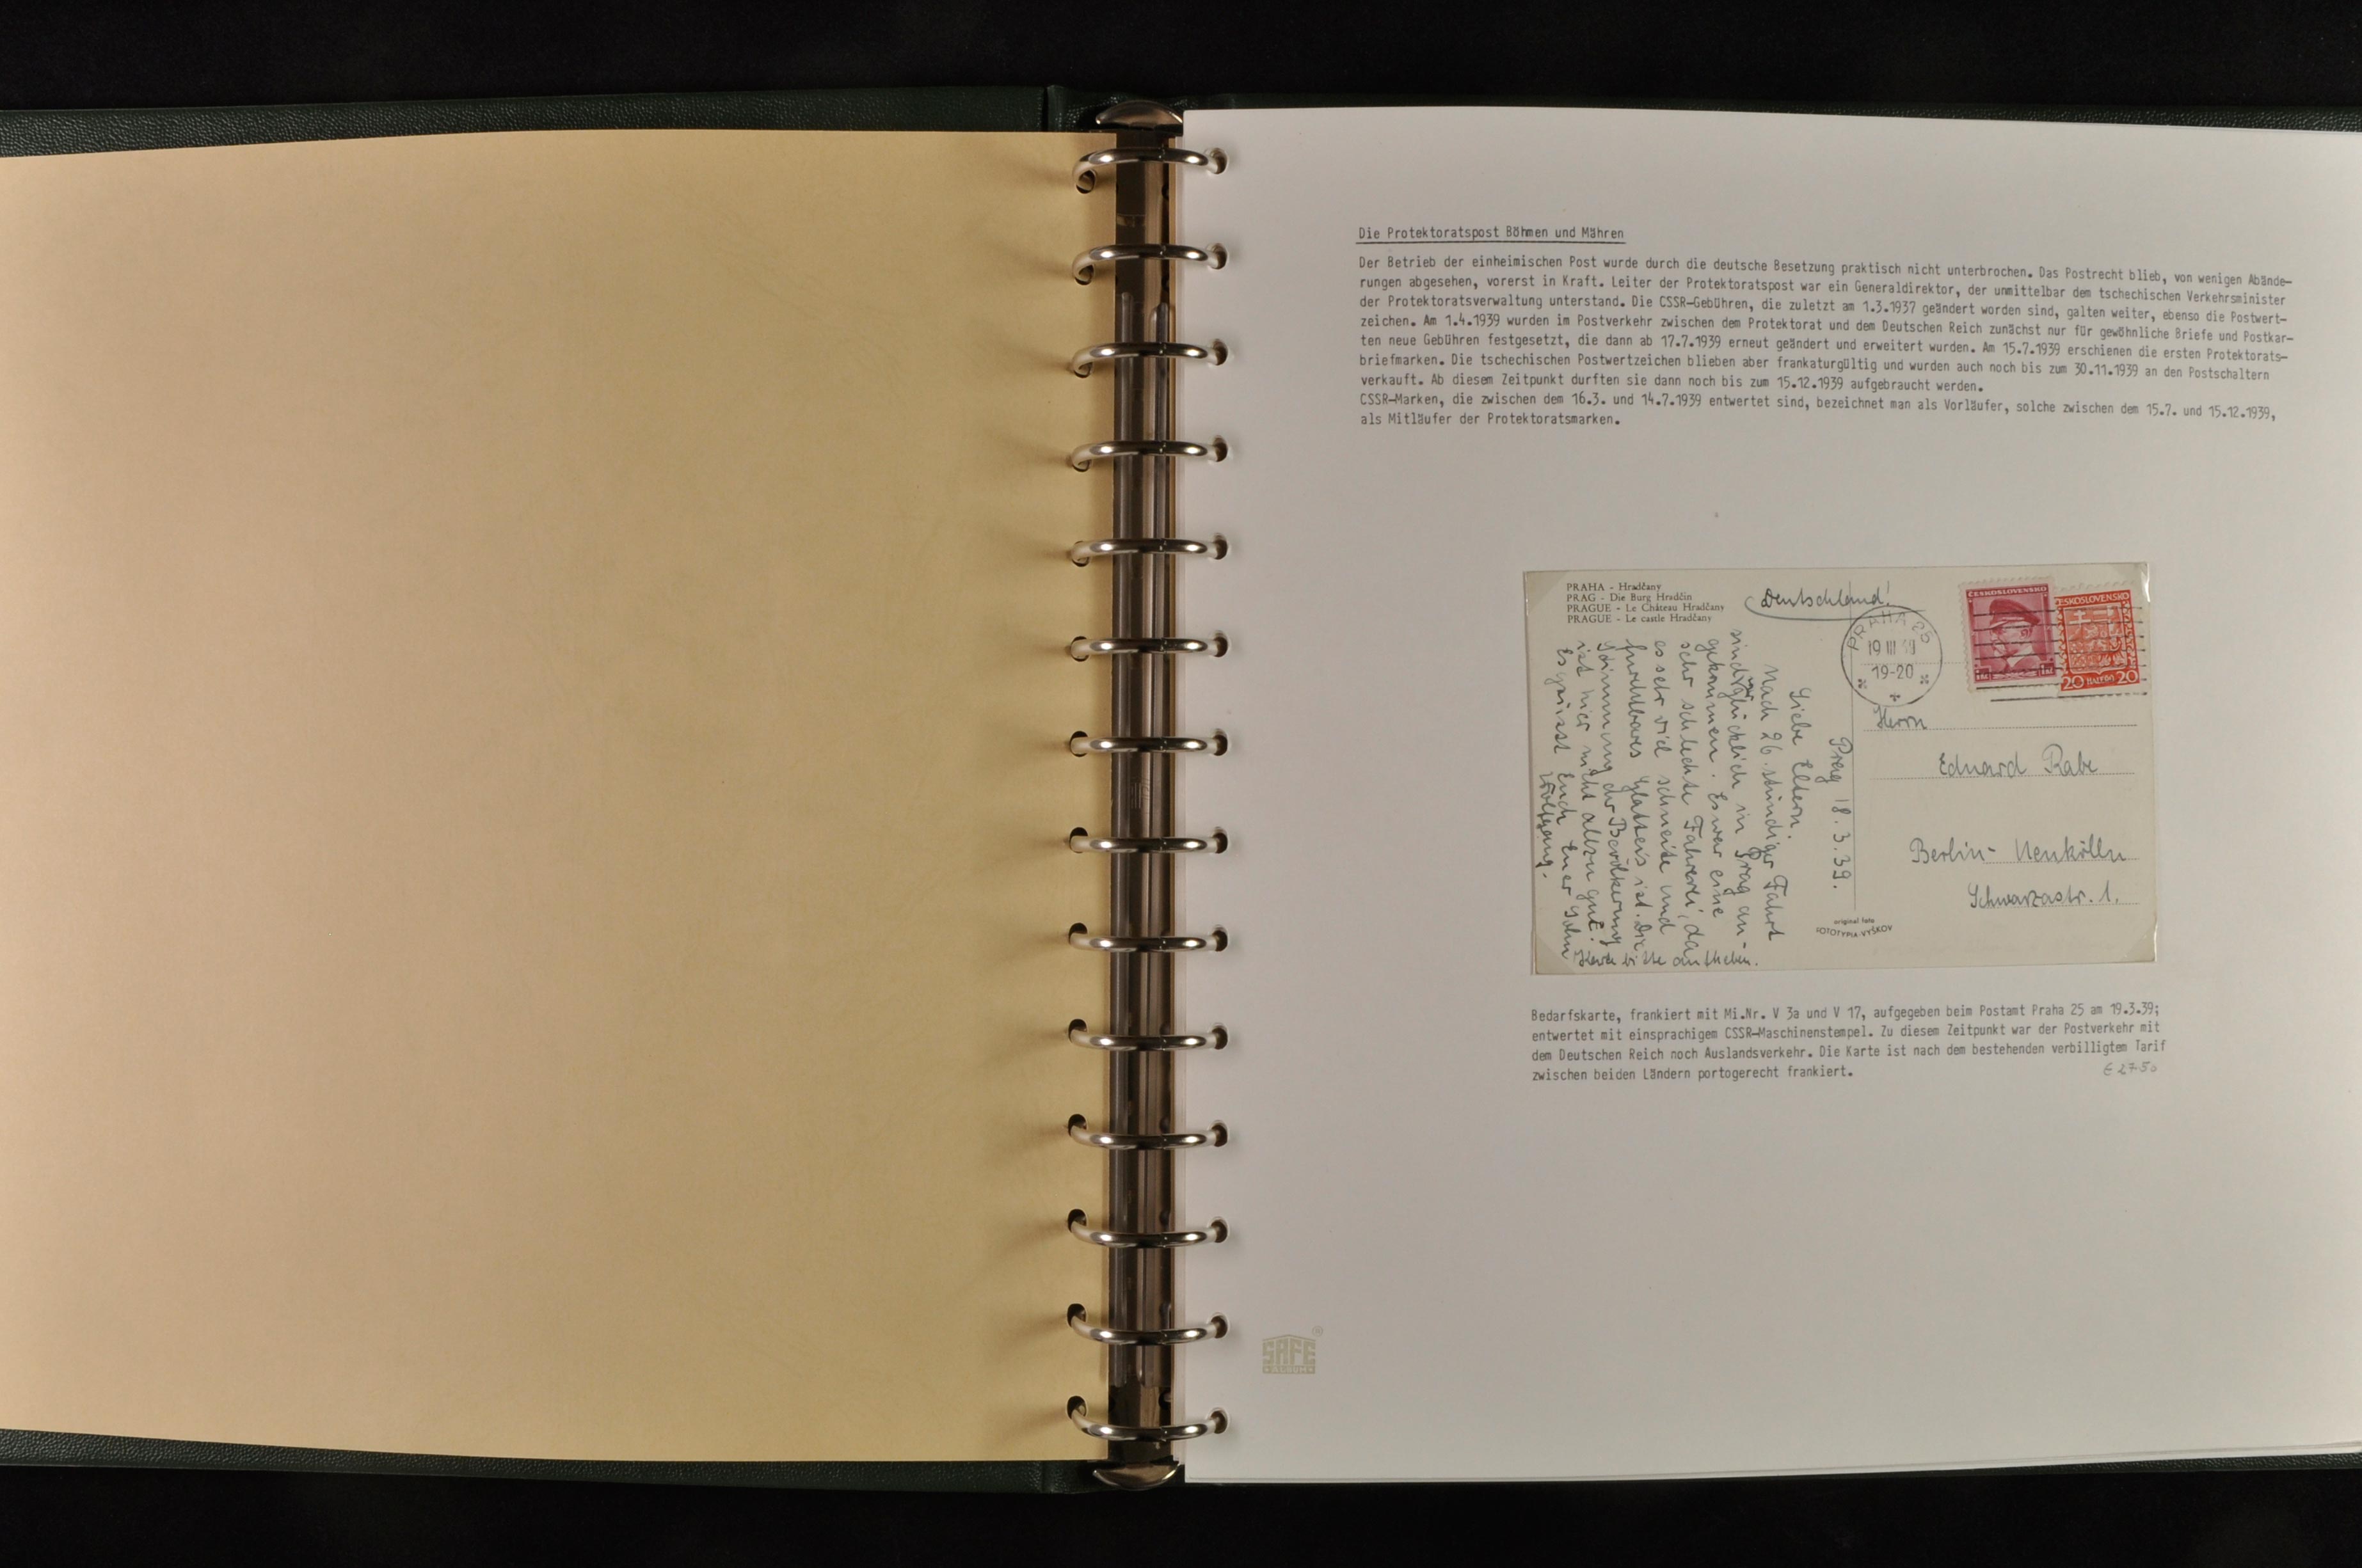 Die Protektoratspost Böhmen und Mähren
Der Betrieb der einheimischen Post wurde durch die deutsche Besetzung praktisch nicht unterbrochen. Das Postrecht blieb, von wenigen Abände-
rungen abgesehen, vorerst in Kraft. Leiter der Protektoratspost war ein Generaldirektor, der unmittelbar dem tschechischen Verkehrsminister
der Protektoratsverwaltung unterstand. Die CSSR-Gebühren, die zuletzt am 1.3.1937 geändert worden sind, galten weiter, ebenso die Postwert-
zeichen. Am 1.4.1939 wurden im Postverkehr zwischen dem Protektorat und dem Deutschen Reich zunächst nur für gewöhnliche Briefe und Postkar-
ten neue Gebühren festgesetzt, die dann ab 17.7.1939 erneut geändert und erweitert wurden. Am 15.7.1939 erschienen die ersten Protektorats-
briefmarken. Die tschechischen Postwertzeichen blieben aber frankaturgültig und wurden auch noch bis zum 30.11.1939 an den Postschaltern
verkauft. Ab diesem Zeitpunkt durften sie dann noch bis zum 15.12.1939 aufgebraucht werden.
CSSR-Marken, die zwischen dem 16.3. und 14.7.1939 entwertet sind, bezeichnet man als Vorläufer, solche zwischen dem 15.7. und 15.12.1939,
als Mitläufer der Protektoratsmarken.
PRAHA - Hradčany
PRAG - Die Burg Hradčin
PRAGUE - Le Château Hradčany
PRAGUE - Le castle Hradčany
Deutschland!
PRAHA 25
19 III 39
19-20
ČESKOSLOVENSKO
ČESKOSLOVENSKO
20 HALÉŘŮ 20
Herrn
Eduard Rabe
Berlin-Neukölln
Schwarzastr. 1.
Prag 18.3.39.
Liebe Eltern.
Nach 26 stündiger Fahrt
sind wir glücklich in Prag an-
gekommen. Es war eine
sehr schlechte Fahrerei, da
es sehr viel schneite und
furchtbares Glatteis ist. Die
Stimmung der Bevölkerung
ist hier nicht allzu gut.
Es grüsst Euch Euer Sohn
Wolfgang.
Karte bitte aufheben.
original foto
FOTOTYPIA-VYŠKOV
Bedarfskarte, frankiert mit Mi.Nr. V 3a und V 17, aufgegeben beim Postamt Praha 25 am 19.3.39;
entwertet mit einsprachigem CSSR-Maschinenstempel. Zu diesem Zeitpunkt war der Postverkehr mit
dem Deutschen Reich noch Auslandsverkehr. Die Karte ist nach dem bestehenden verbilligtem Tarif
zwischen beiden Ländern portogerecht frankiert.
SAFE
ALBUM